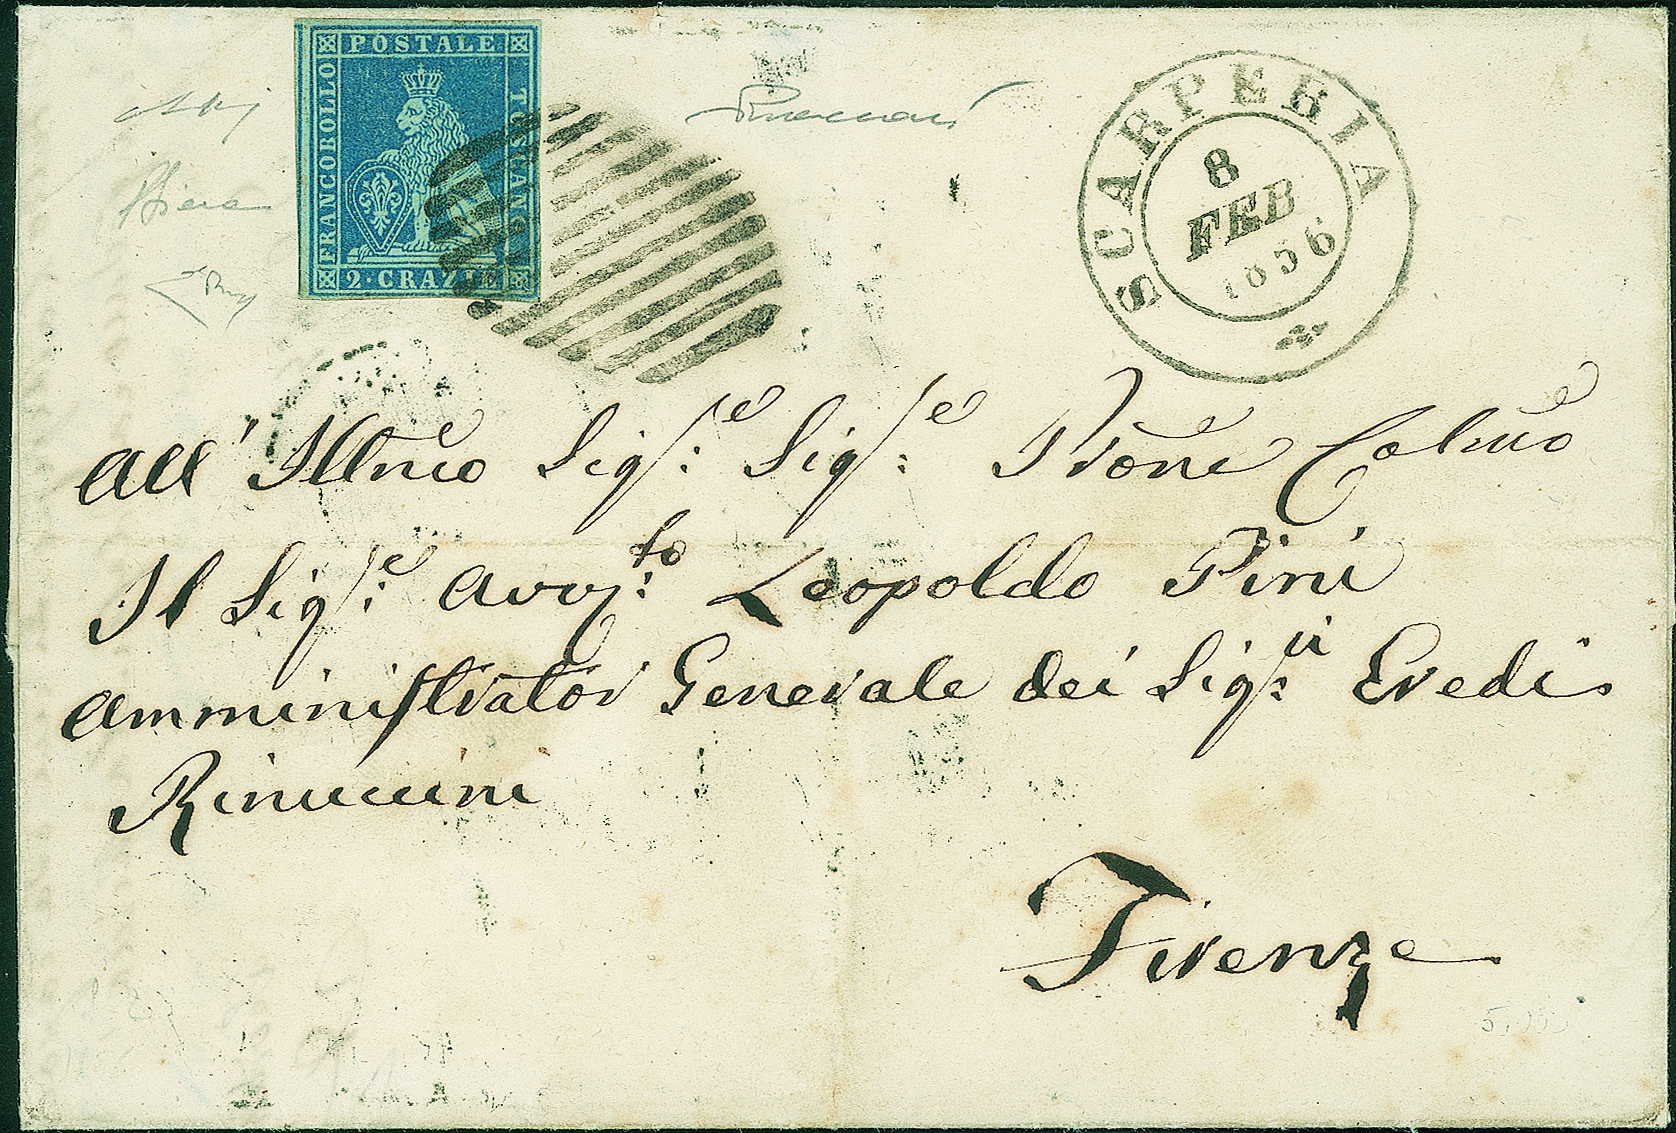 POSTALE
FRANCOBOLLO
TOSCANO
2·CRAZIE
SCARPERIA
8
FEB
1856
All' Illmo Sigr.e Sigr.e Prone Colmo
Il Sigr.e Avv.to Leopoldo Pini
Amministrator Generale dei Sigr.ri Eredi
Rinuccini
Firenze